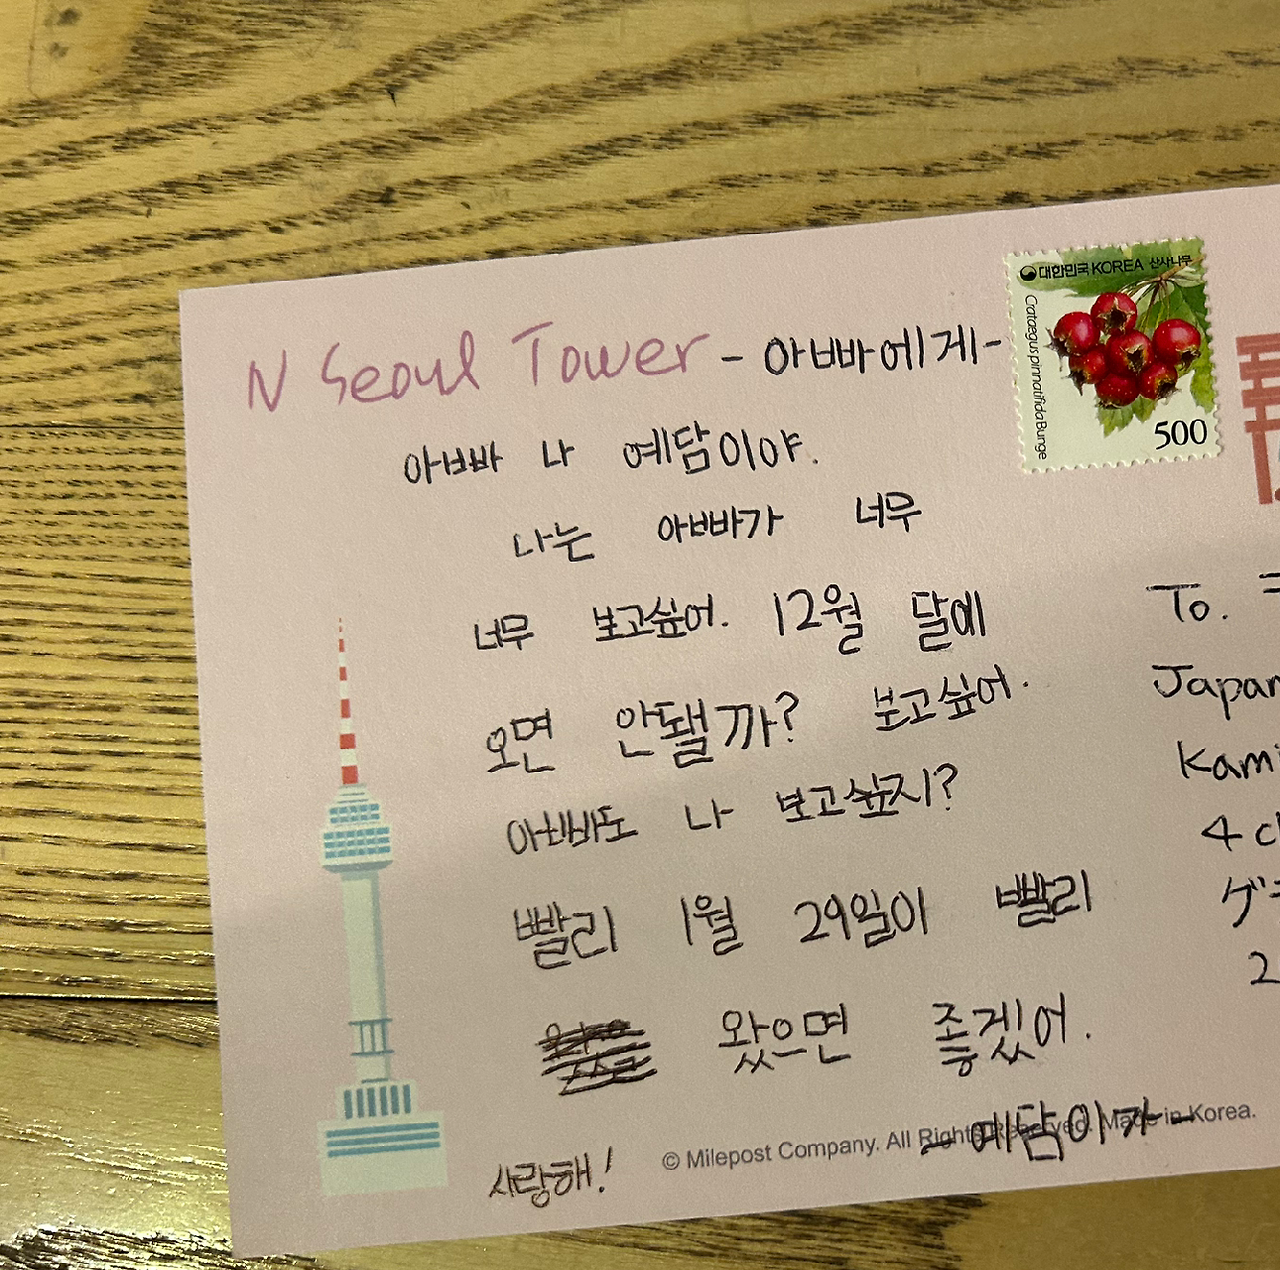 N Seoul Tower - 아빠에게-
대한민국 KOREA 산사나무
Crataegus pinnatifida Bunge
500
아빠 나 예담이야.
나는 아빠가 너무
너무 보고싶어. 12월 달에
오면 안됄까? 보고싶어.
아빠도 나 보고싶지?
빨리 1월 29일이 빨리
왔으면 좋겠어.
- 예담이가 -
사랑해!
© Milepost Company. All Rights Reserved. Made in Korea.
To.
Japan
Kami
4
2